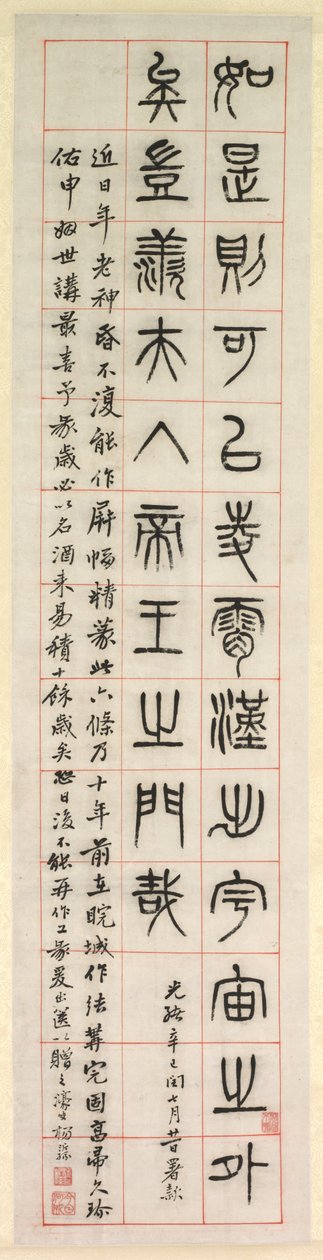 如是則可㠯淩霄漢出宇宙之外
矣豈羨夫入帝王之門哉
光緒辛巳閏七月廿日署款
近日年老神昏不復能作屏幅精篆此六條乃十年前在皖城作結構完固久
佑申世講最喜予篆歲必以名酒來易積十餘歲矣恐日後不能再作工篆爰出篋以贈之濠叟楊沂孫